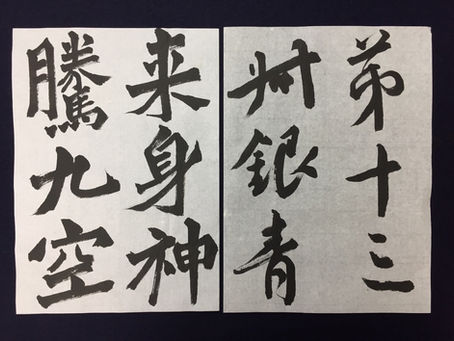 第十三
州銀青
来身神
騰九空